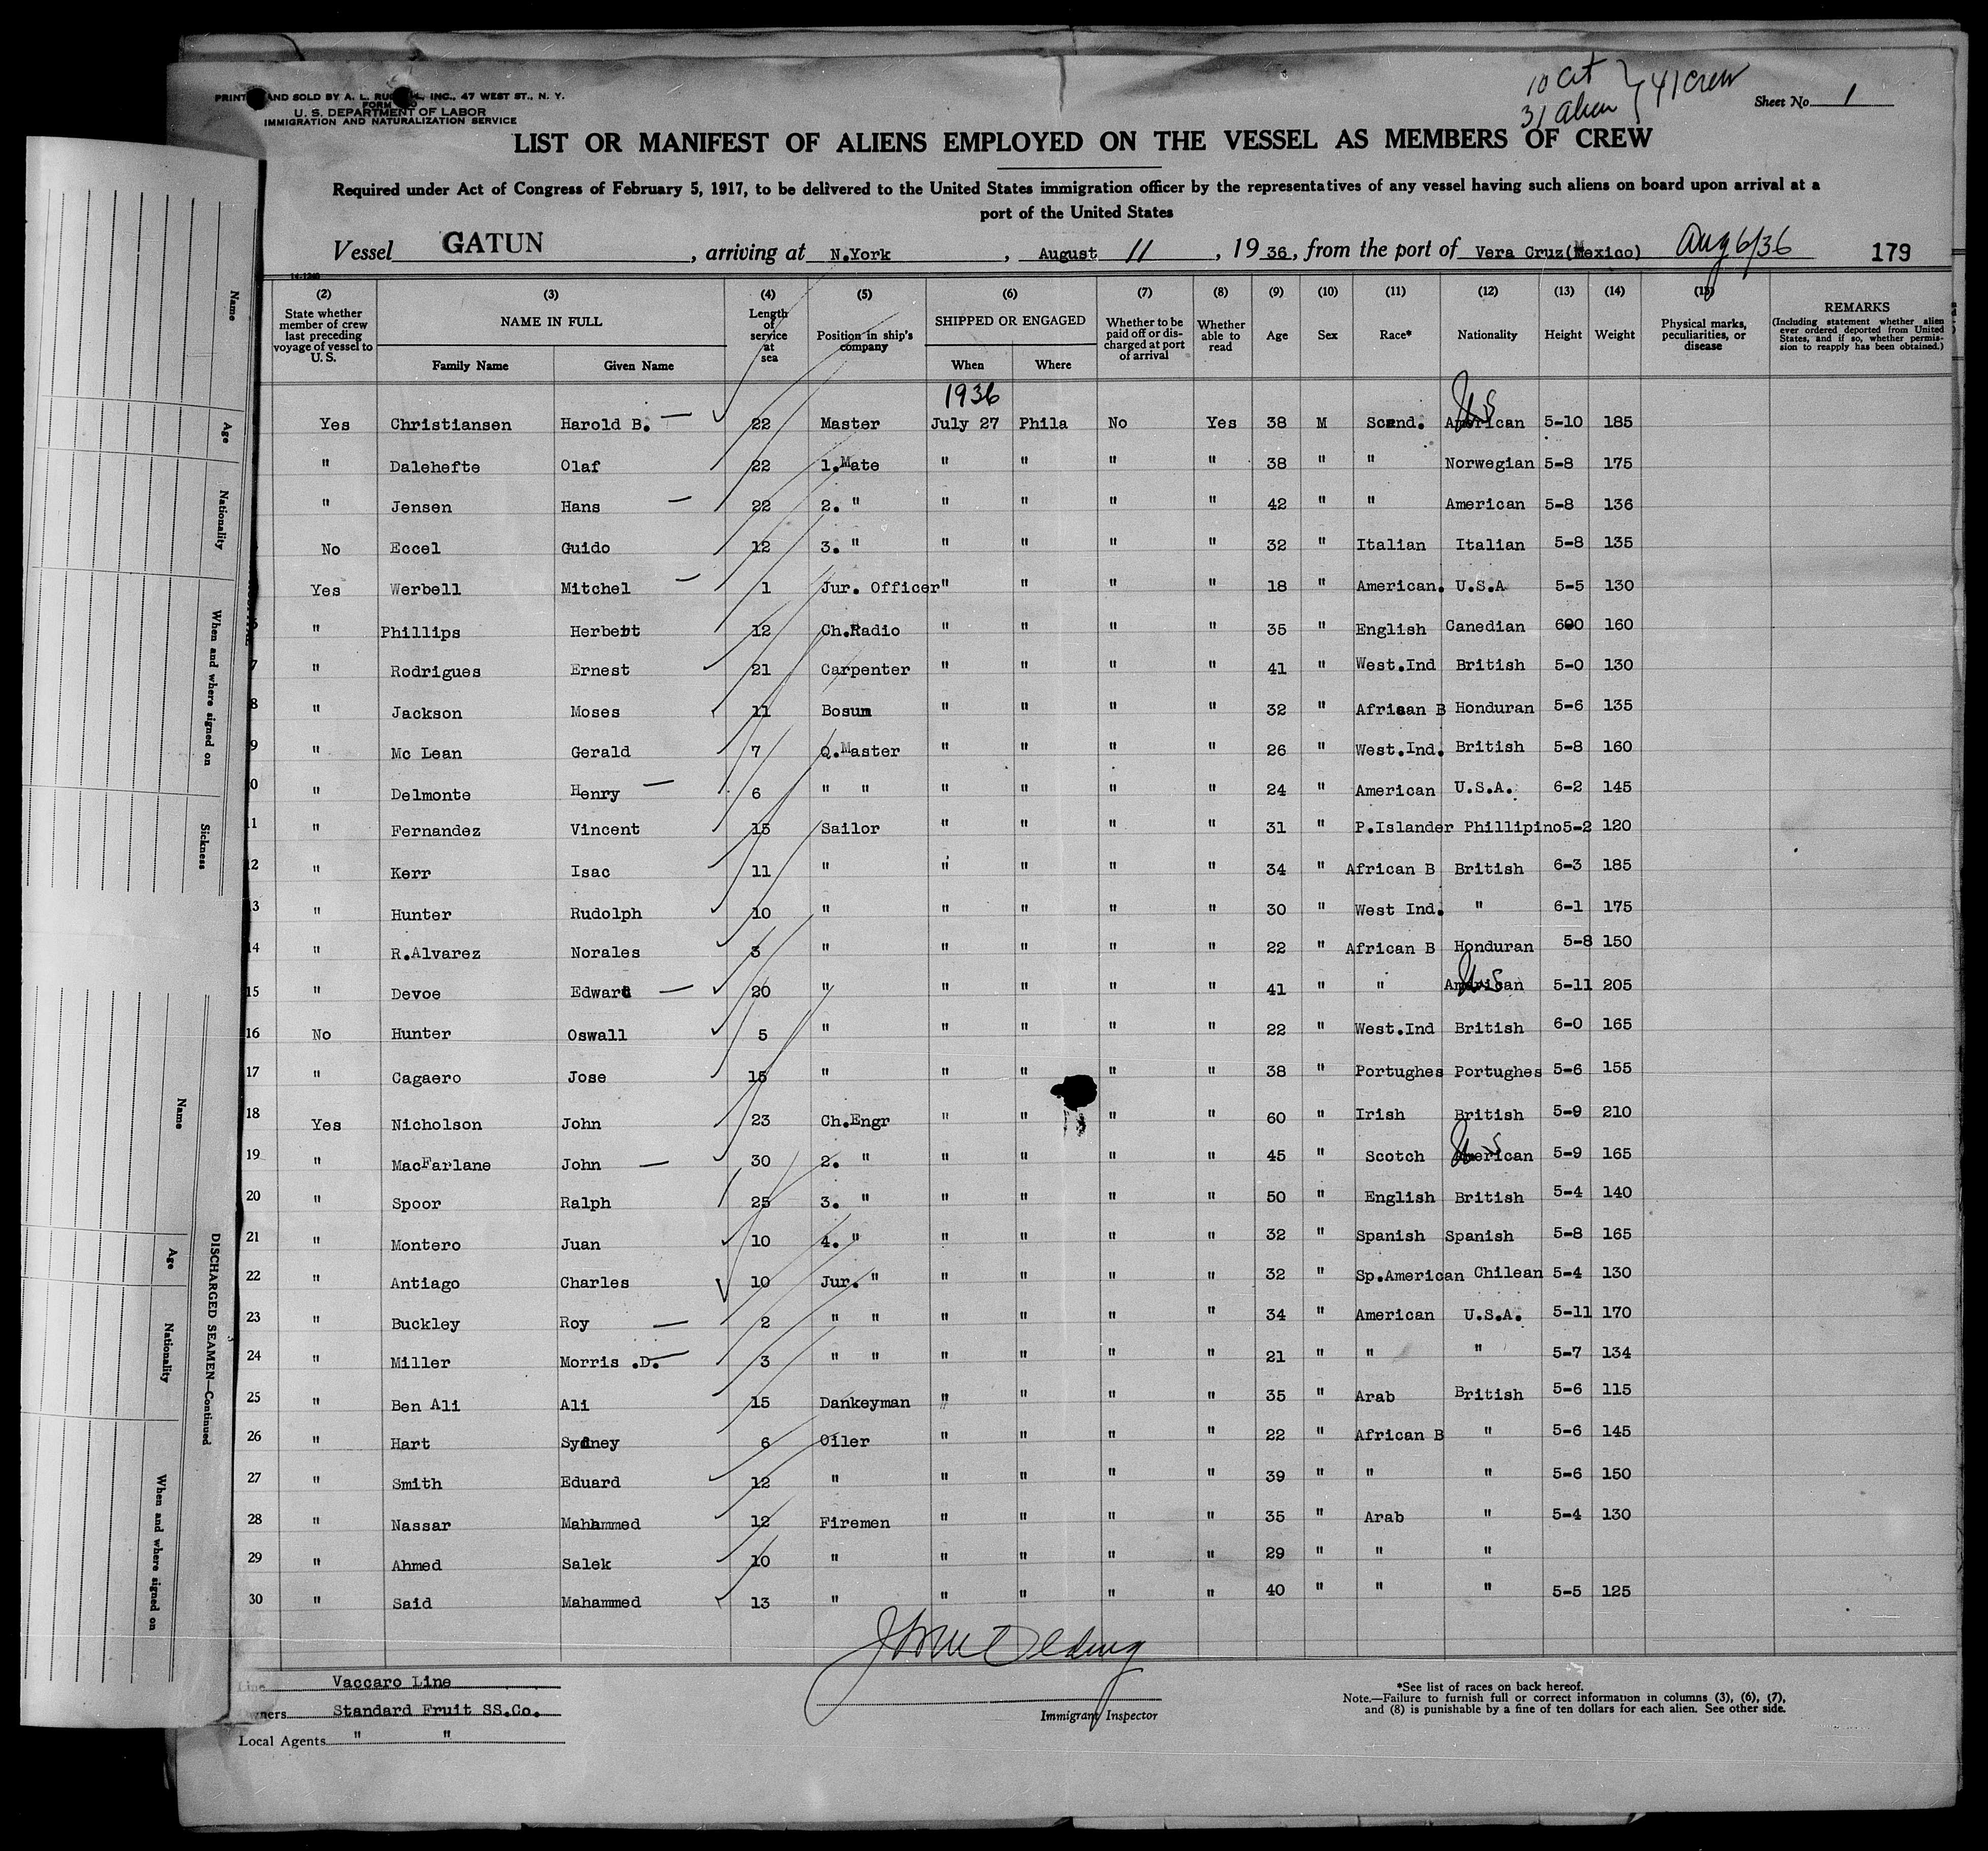 10 Cit } 41 crew
31 Alien
Sheet No. 1
AND SOLD BY A. L. INC., 47 WEST ST., N. Y.
FORM
U. S. DEPARTMENT OF LABOR
IMMIGRATION AND NATURALIZATION SERVICE
LIST OR MANIFEST OF ALIENS EMPLOYED ON THE VESSEL AS MEMBERS OF CREW
Required under Act of Congress of February 5, 1917, to be delivered to the United States immigration officer by the representatives of any vessel having such aliens on board upon arrival at a
port of the United States
Vessel GATUN, arriving at N.York, August 11, 1936, from the port of Vera Cruz(Mexico) Aug 6/36 179
14-1240
(2) State whether member of crew last preceding voyage of vessel to U. S.
(3) NAME IN FULL
Family Name Given Name
(4) Length of service at sea
(5) Position in ship's company
(6) SHIPPED OR ENGAGED
When Where
(7) Whether to be paid off or discharged at port of arrival
(8) Whether able to read
(9) Age
(10) Sex
(11) Race*
(12) Nationality
(13) Height
(14) Weight
(15) Physical marks, peculiarities, or disease
REMARKS
(Including statement whether alien ever ordered deported from United States, and if so, whether permission to reapply has been obtained.)
1936
Yes Christiansen Harold B. — 22 Master July 27 Phila No Yes 38 M Scand. American US 5-10 185
" Dalehefte Olaf 22 1.Mate " " " " 38 " " Norwegian 5-8 175
" Jensen Hans — 22 2. " " " " " 42 " " American 5-8 136
No Eccel Guido 12 3. " " " " " 32 " Italian Italian 5-8 135
Yes Werbell Mitchel — 1 Jur. Officer " " " " 18 " American. U.S.A 5-5 130
" Phillips Herbert 12 Ch.Radio " " " " 35 " English Canedian 600 160
7 " Rodrigues Ernest 21 Carpenter " " " " 41 " West.Ind British 5-0 130
8 " Jackson Moses 11 Bosun " " " " 32 " African B Honduran 5-6 135
9 " Mc Lean Gerald 7 Q.Master " " " " 26 " West.Ind. British 5-8 160
0 " Delmonte Henry — 6 " " " " " " 24 " American U.S.A. 6-2 145
11 " Fernandez Vincent 15 Sailor " " " " 31 " P.Islander Phillipino 5-2 120
12 " Kerr Isac 11 " " " " " 34 " African B British 6-3 185
3 " Hunter Rudolph 10 " " " " " 30 " West Ind. " 6-1 175
14 " R.Alvarez Norales 3 " " " " " 22 " African B Honduran 5-8 150
15 " Devoe Edward — 20 " " " " " 41 " " American US 5-11 205
16 No Hunter Oswall 5 " " " " " 22 " West.Ind British 6-0 165
17 " Cagaero Jose 15 " " " " " 38 " Portughes Portughes 5-6 155
18 Yes Nicholson John 23 Ch.Engr " " " " 60 " Irish British 5-9 210
19 " MacFarlane John — 30 2. " " " " " 45 " Scotch American US 5-9 165
20 " Spoor Ralph 25 3. " " " " " 50 " English British 5-4 140
21 " Montero Juan 10 4. " " " " " 32 " Spanish Spanish 5-8 165
22 " Antiago Charles 10 Jur. " " " " " 32 " Sp.American Chilean 5-4 130
23 " Buckley Roy — 2 " " " " " " 34 " American U.S.A. 5-11 170
24 " Miller Morris .D. — 3 " " " " " " 21 " " " 5-7 134
25 " Ben Ali Ali 15 Dankeyman " " " " 35 " Arab British 5-6 115
26 " Hart Sydney 6 Oiler " " " " 22 " African B " 5-6 145
27 " Smith Eduard 12 " " " " " 39 " " " 5-6 150
28 " Nassar Mahammed 12 Firemen " " " " 35 " Arab " 5-4 130
29 " Ahmed Salek 10 " " " " " 29 " " "
30 " Said Mahammed 13 " " " " " 40 " " " 5-5 125
Line Vaccaro Line
Owners Standard Fruit SS.Co.
Local Agents " "
Immigrant Inspector
*See list of races on back hereof.
Note.—Failure to furnish full or correct information in columns (3), (6), (7),
and (8) is punishable by a fine of ten dollars for each alien. See other side.
Name
Age
Nationality
When and where signed on
Sickness
DISCHARGED SEAMEN—Continued
Name
Age
Nationality
When and where signed on